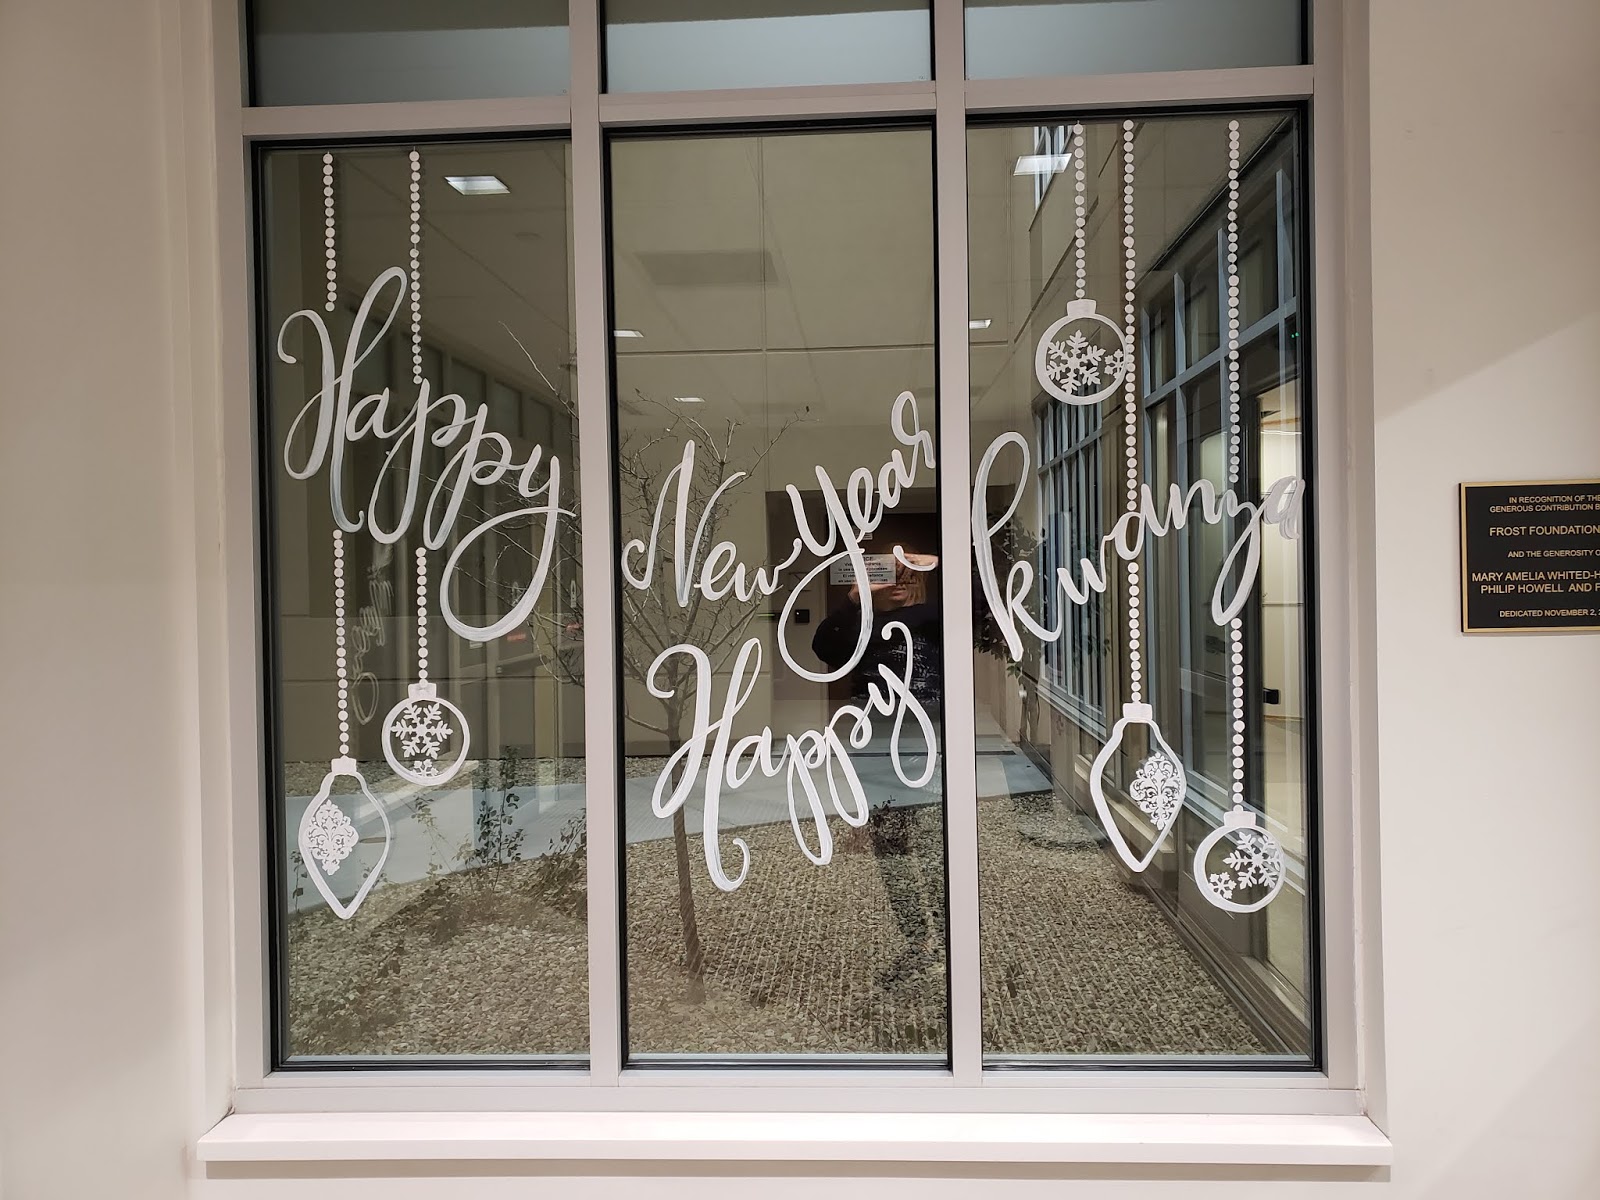 Happy
New Year
Happy
Kwanza
IN RECOGNITION OF THE
GENEROUS CONTRIBUTION B
FROST FOUNDATION
AND THE GENEROSITY O
MARY AMELIA WHITED-H
PHILIP HOWELL AND F
DEDICATED NOVEMBER 2, 2